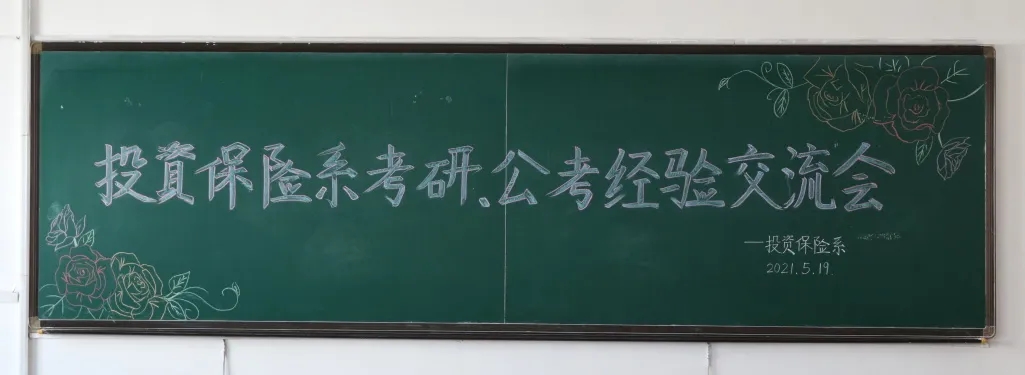 投资保险系考研、公考经验交流会
—投资保险系
2021.5.19.